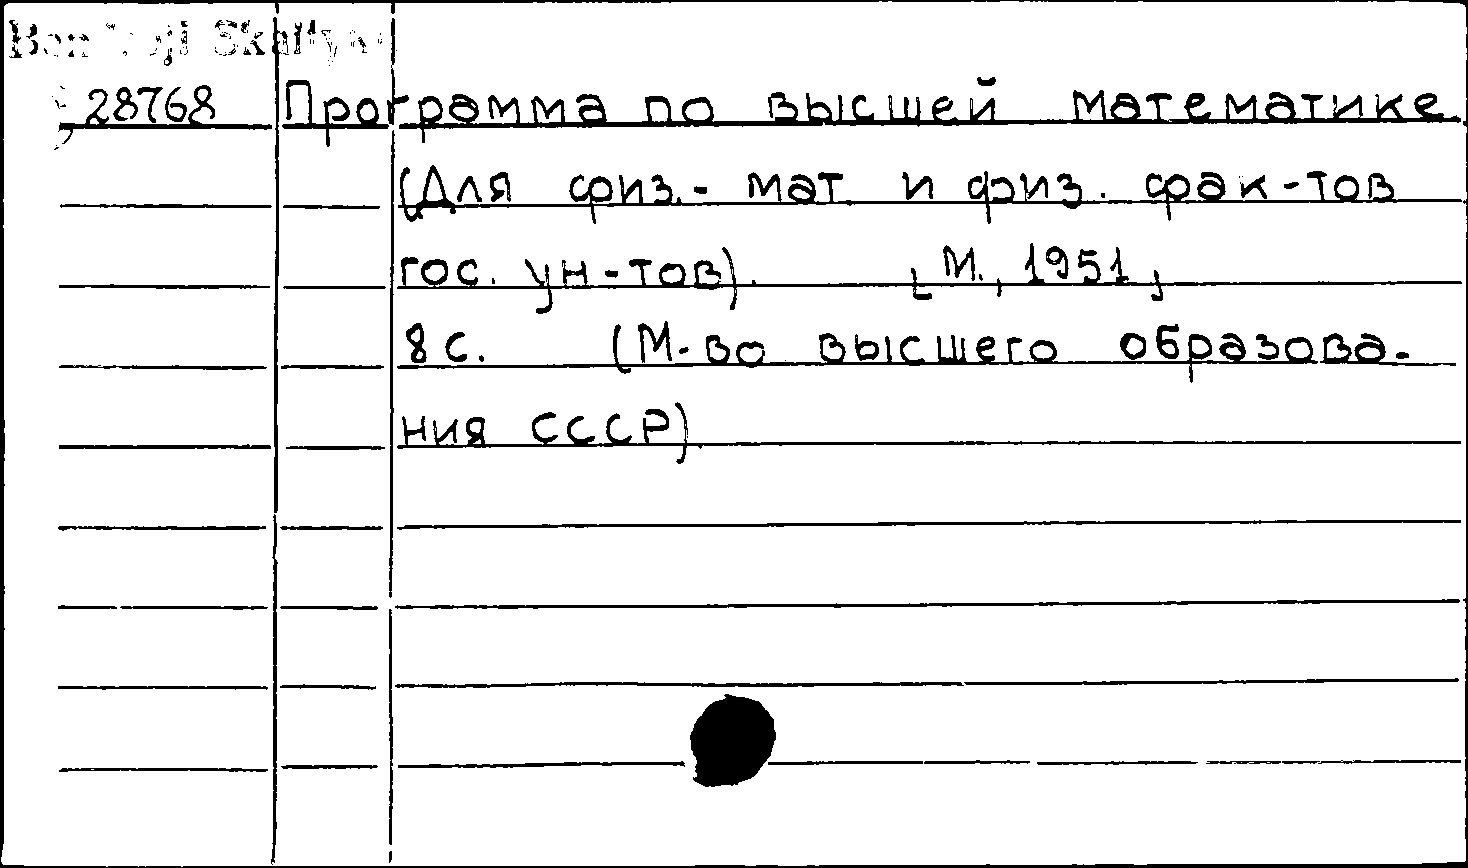 Bendroji Skaityk
28768 Программа по высшей математике.
(Для физ.-мат. и физ. фак-тов
гос. ун-тов). [М., 1951]
8 с. (М-во высшего образова-
ния СССР)